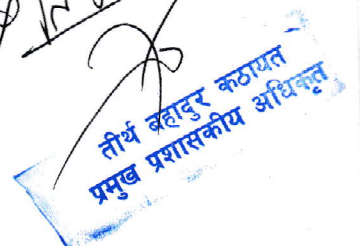 तीर्थ बहादुर कठायत
प्रमुख प्रशासकीय अधिकृत